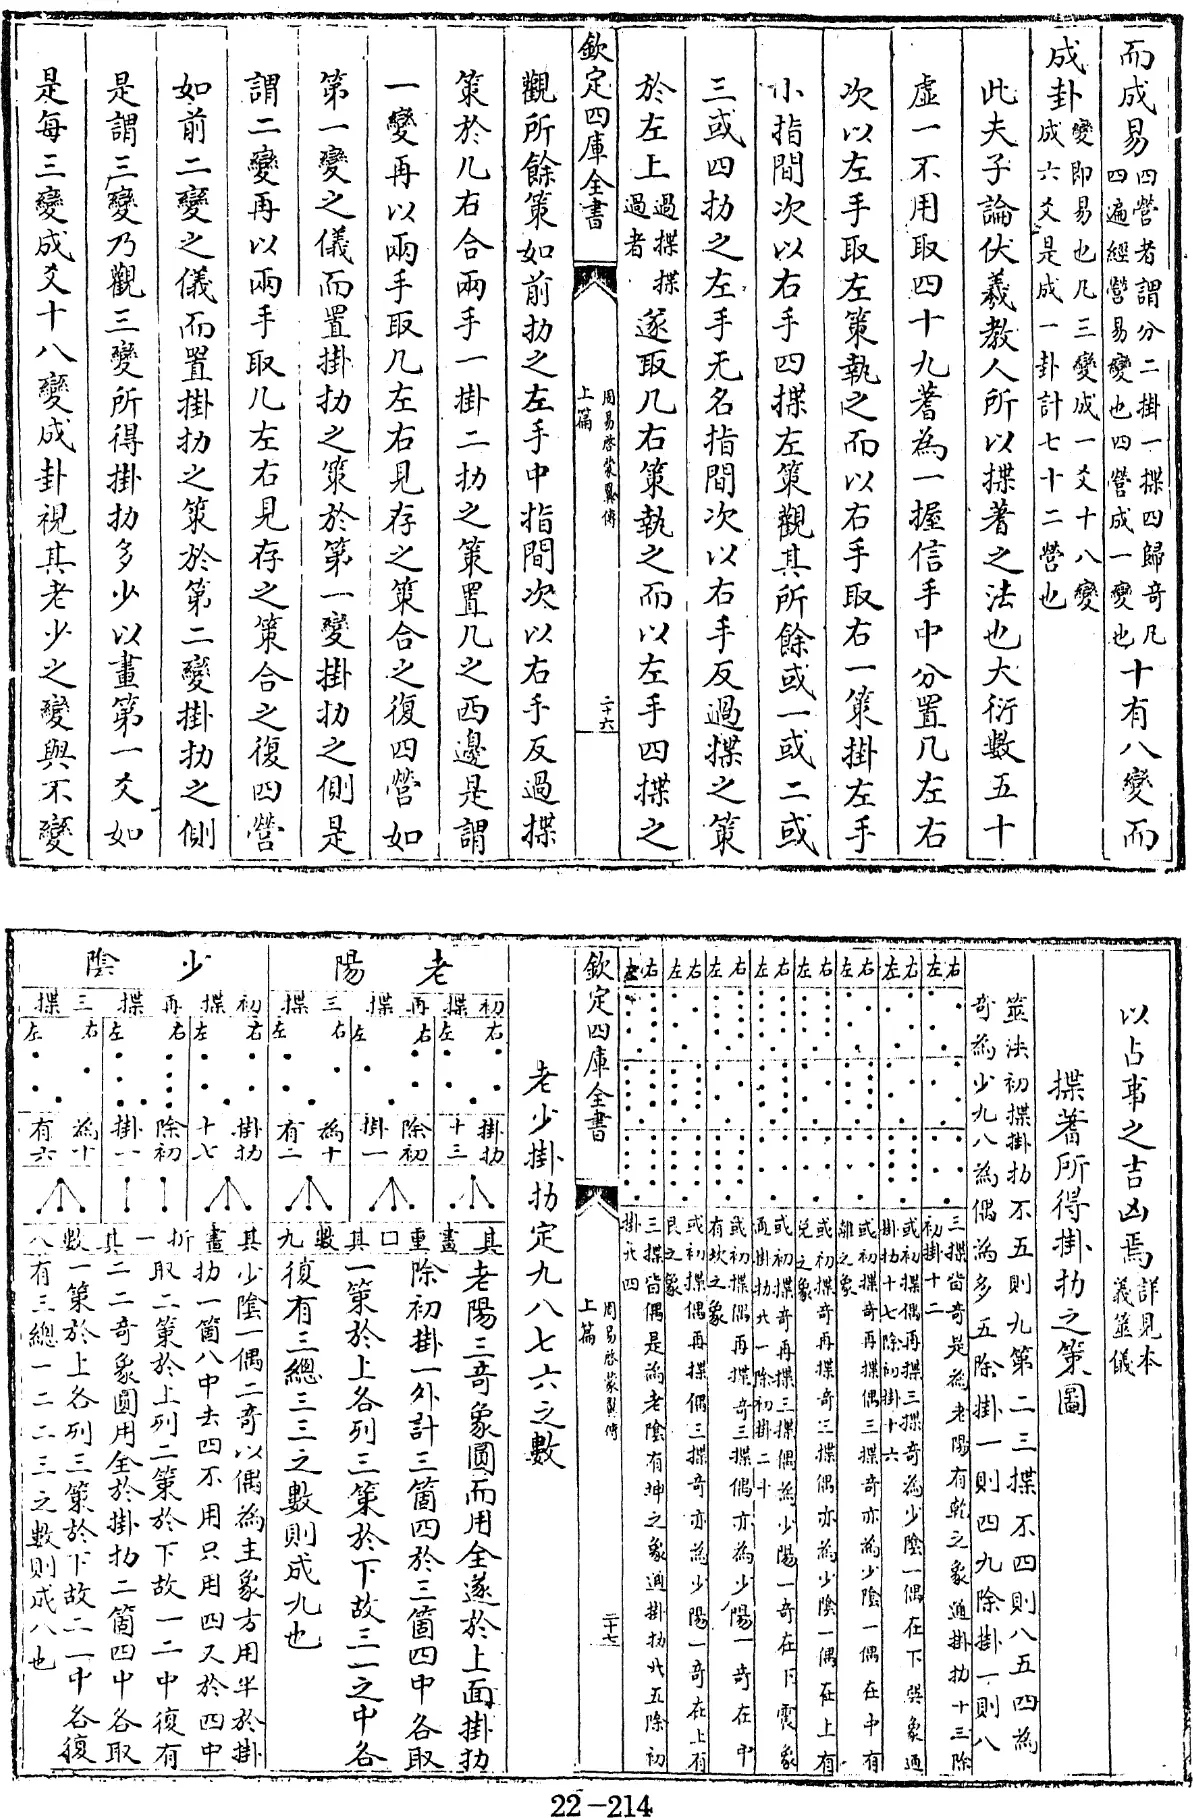 而成易四營者謂分二掛一揲四歸奇凡四遍經營易變也四營成一變也十有八變而
成卦變即易也凡三變成一爻十八變成六爻是成一卦計七十二營也
此夫子論伏羲教人所以揲蓍之法也大衍數五十
虛一不用取四十九蓍為一握信手中分置几左右
次以左手取左策執之而以右手取右一策掛左手
小指間次以右手四揲左策觀其所餘或一或二或
三或四扐之左手无名指間次以右手反過揲之策
於左上過揲揲過者遂取几右策執之而以左手四揲之
欽定四庫全書
周易啓蒙翼傳
上篇
二十六
觀所餘策如前扐之左手中指間次以右手反過揲
策於几右合兩手一掛二扐之策置几之西邊是謂
一變再以兩手取几左右見存之策合之復四營如
第一變之儀而置掛扐之策於第一變掛扐之側是
謂二變再以兩手取几左右見存之策合之復四營
如前二變之儀而置掛扐之策於第二變掛扐之側
是謂三變乃觀三變所得掛扐多少以畫第一爻如
是每三變成爻十八變成卦視其老少之變與不變
以占事之吉凶焉詳見本義筮儀
揲蓍所得掛扐之策圖
筮法初揲掛扐不五則九第二三揲不四則八五四為
奇為少九八為偶為多五除掛一則四九除掛一則八
右左
三揲皆奇是為老陽有乾之象通掛扐十三除
初掛十二
右左
或初揲偶再揲三揲奇為少陰一偶在下巽象通
掛扐十七除初掛十六
右左
或初揲奇再揲偶三揲奇亦為少陰一偶在中有
離之象
右左
或初揲奇再揲奇三揲偶亦為少陰一偶在上有
兌之象
右左
或初揲奇再揲三揲偶為少陽一奇在下震象
通掛扐廿一除初掛二十
右左
或初揲偶再揲奇三揲偶亦為少陽一奇在中
有坎之象
右左
或初揲偶再揲偶三揲奇亦為少陽一奇在上有
艮之象
右左
三揲皆偶是為老陰有坤之象通掛扐廿五除初
掛廿四
欽定四庫全書
周易啓蒙翼傳
上篇
二十七
老少掛扐定九八七六之數
老陽
初揲再揲三揲
右左右左右左
掛扐十三
除初掛一
為十有二
其畫重囗其數九
其老陽三奇象圓而用全遂於上面掛扐
除初掛一外計三箇四於三箇四中各取
一策於上各列三策於下故三一之中各
復有三總三三之數則成九也
少陰
初揲再揲三揲
右左右左右左
掛扐十七
除初掛一
為十有六
其畫折一其數八
其少陰一偶二奇以偶為主象方用半於掛
扐一箇八中去四不用只用四又於四中
取二策於上列二策於下故一二中復有
二二奇象圓用全於掛扐二箇四中各取
一策於上各列三策於下故二一中各復
有三總一二二三之數則成八也
22-214